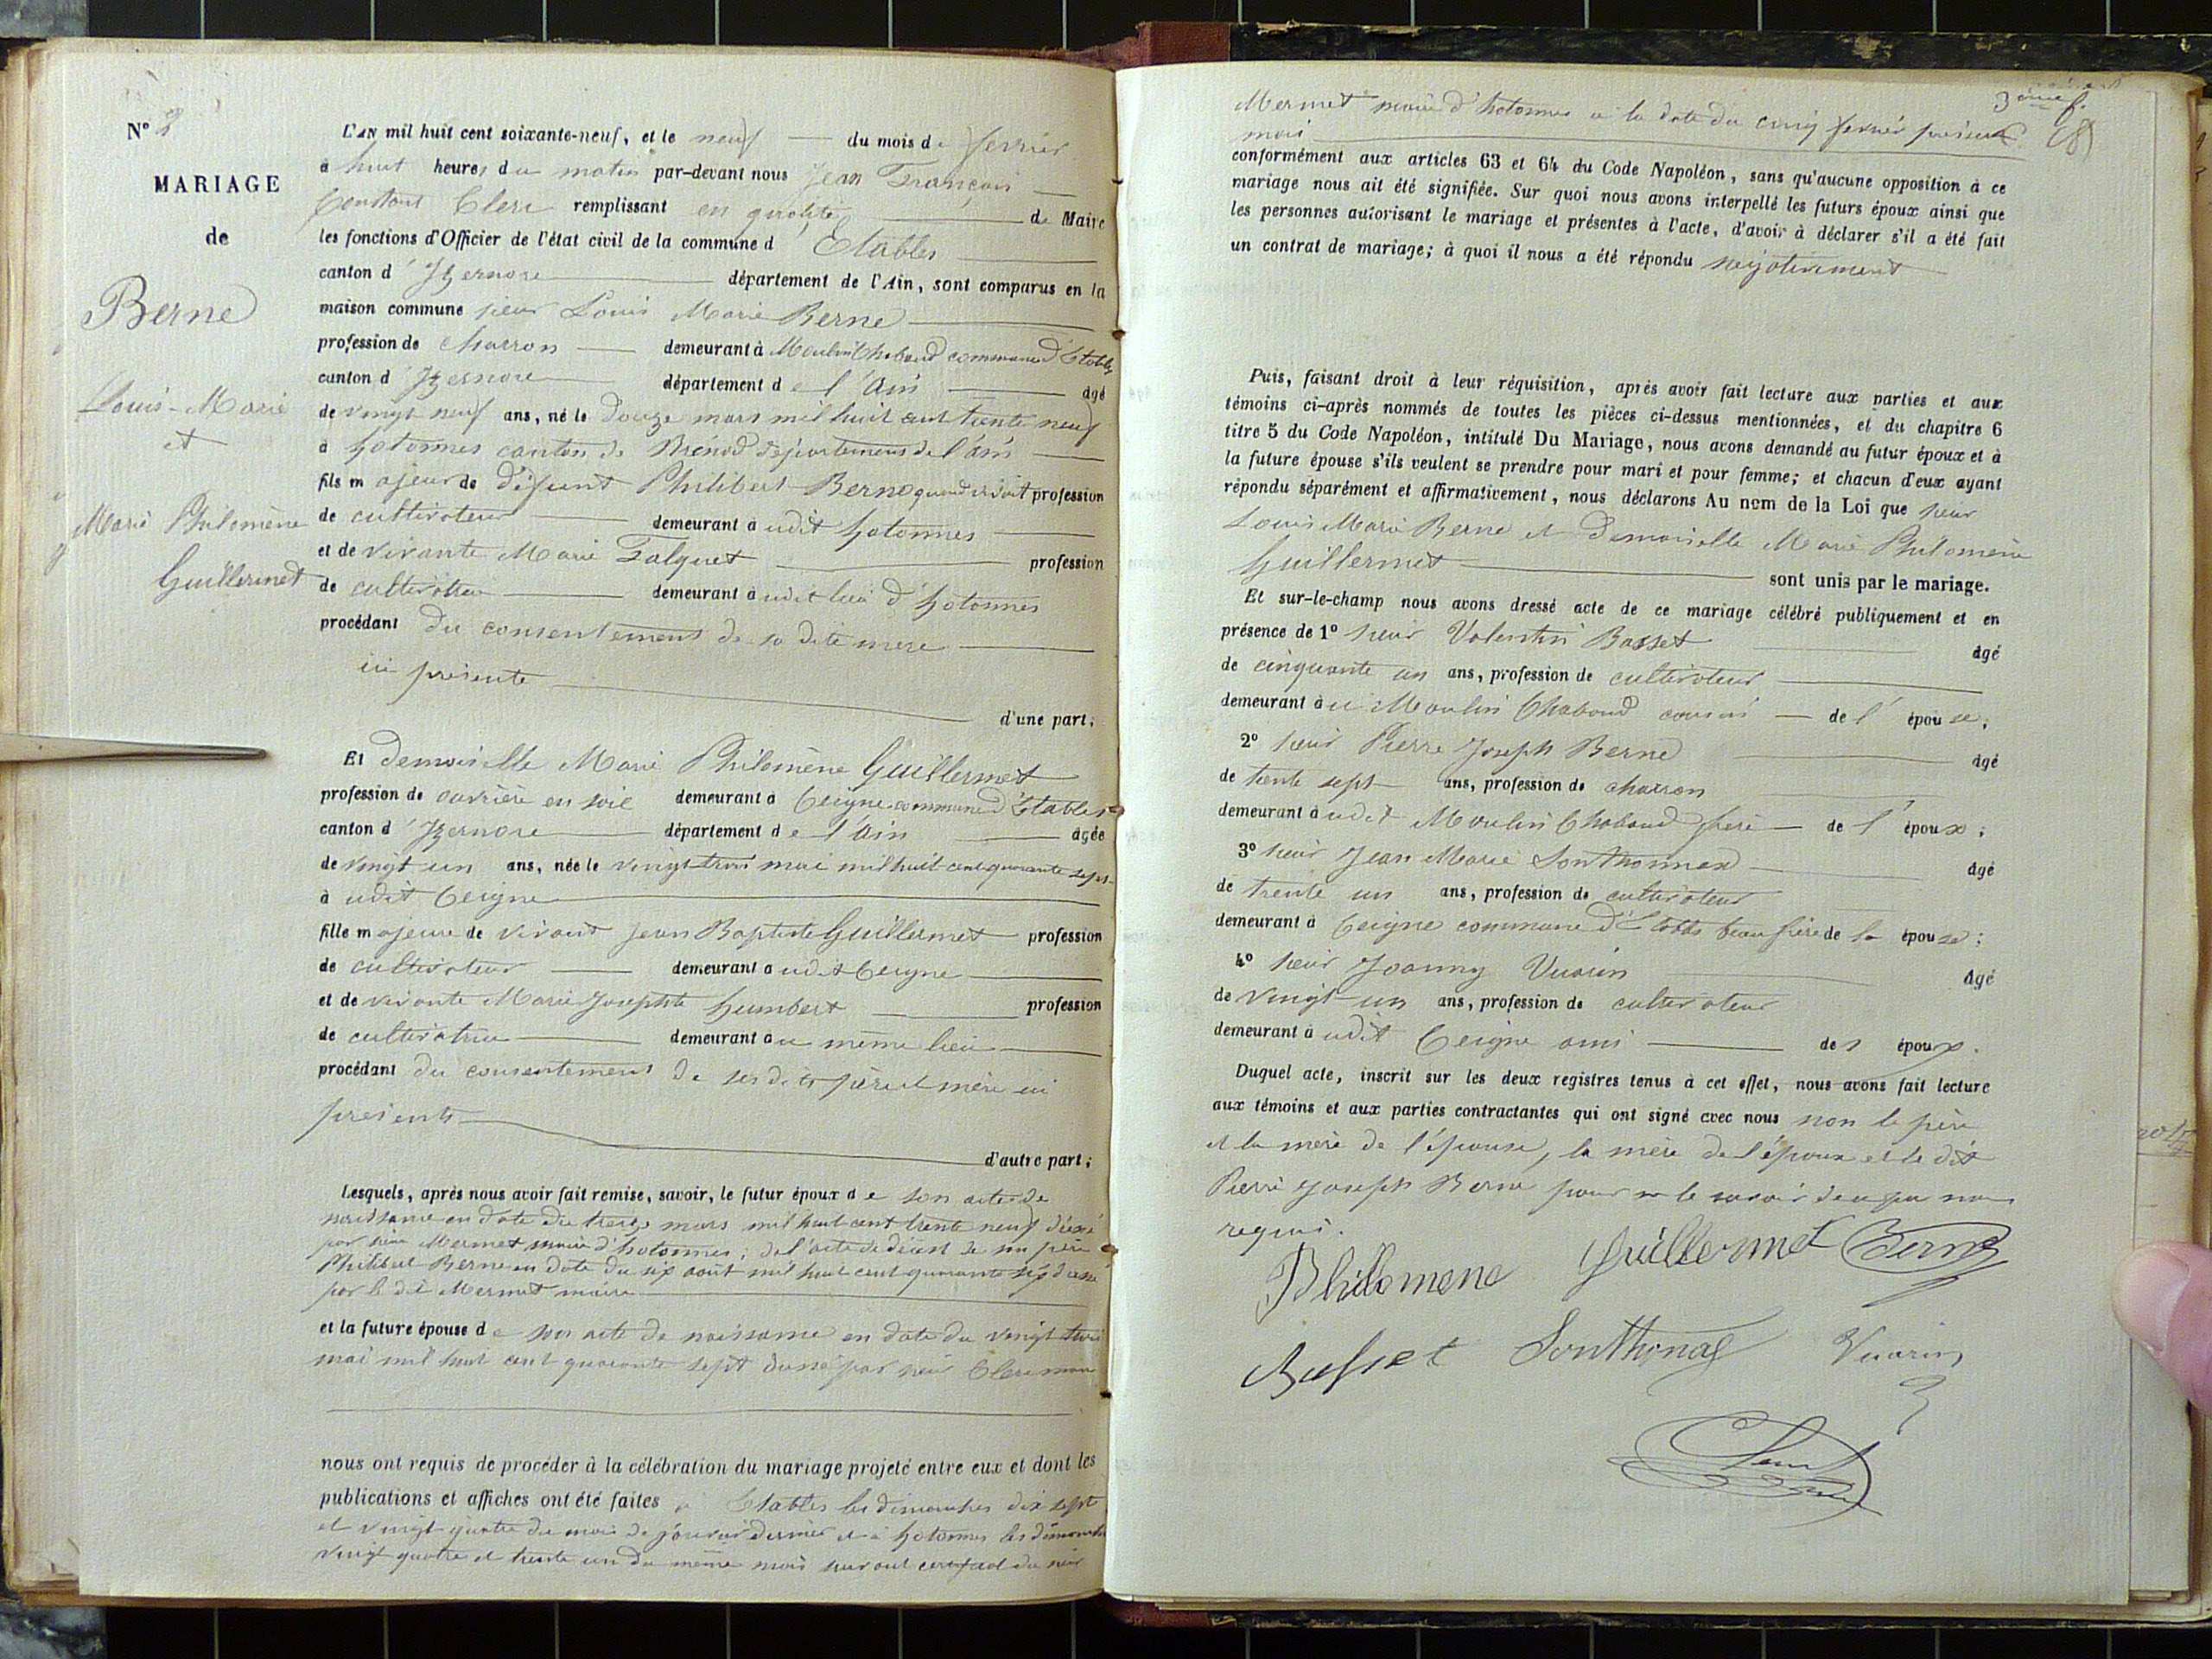 N° 2
MARIAGE
de
Berne
Louis-Marie
et
Marie Philomène
Guillermet
L'AN mil huit cent soixante-neuf, et le neuf du mois de fevrier
a huit heures du matin par-devant nous Jean François
Constant Clerc remplissant en qualité de Maire
les fonctions d'Officier de l'état civil de la commune d'Etables
canton d'Izernore département de l'Ain, sont comparus en la
maison commune sieur Louis Marie Berne
profession de charron demeurant à Moulin Chabaud commune d'Etables
canton d'Izernore département de l'Ain agé
de vingt neuf ans, né le Douze mars mil huit cent trente neuf
a hotonnes canton de Brénod département de l'ain
fils majeur de défunt Philibert Berne quand vivait profession
de cultivateur demeurant a udit hotonnes
et de vivante Marie Falquet profession
de cultivatrice demeurant a udit lieu d'hotonnes
procédant du consentement de sa dite mere
ici présente
d'une part;
Et demoiselle Marie Philomène Guillermet
profession de ouvrière en soie demeurant a Ceigne commune d'Etables
canton d'Izernore département de l'Ain agée
de vingt un ans, née le vingt trois mai mil huit cent quarante sept
à udit Ceigne
fille majeure de vivant Jean Baptiste Guillermet profession
de cultivateur demeurant a udit Ceigne
et de vivante Marie Josephte humbert profession
de cultivatrice demeurant au même lieu
procédant du consentement de ses dits père et mère ici
présents
d'autre part;
Lesquels, après nous avoir fait remise, savoir, le futur époux de son acte de
naissance en date du treize mars mil huit cent trente neuf dressé
par sieur Mermet maire d'hotonnes; de l'acte de décès de son père
Philibert Berne en date du six août mil huit cent quarante six dressé
par le dit Mermet maire
et la future épouse de son acte de naissance en date du vingt trois
mai mil huit cent quarante sept dressé par sieur Clerc maire
nous ont requis de procéder à la célébration du mariage projeté entre eux et dont les
publications et affiches ont été faites a Etables les dimanches dix sept
et vingt quatre du mois de janvier dernier et à hotonnes les dimanches
vingt quatre et trente un du même mois suivant certificat du sieur
3eme f.
Mermet maire d'hotonnes a la date du cinq fevrier présent
mois
conformément aux articles 63 et 64 du Code Napoléon, sans qu'aucune opposition à ce
mariage nous ait été signifiée. Sur quoi nous avons interpellé les futurs époux ainsi que
les personnes autorisant le mariage et présentes à l'acte, d'avoir à déclarer s'il a été fait
un contrat de mariage; à quoi il nous a été répondu négativement
Puis, faisant droit à leur réquisition, après avoir fait lecture aux parties et aux
témoins ci-après nommés de toutes les pièces ci-dessus mentionnées, et du chapitre 6
titre 5 du Code Napoléon, intitulé Du Mariage, nous avons demandé au futur époux et à
la future épouse s'ils veulent se prendre pour mari et pour femme; et chacun d'eux ayant
répondu séparément et affirmativement, nous déclarons Au nom de la Loi que sieur
Louis Marie Berne et Demoiselle Marie Philomène
Guillermet sont unis par le mariage.
Et sur-le-champ nous avons dressé acte de ce mariage célébré publiquement et en
présence de 1° sieur Valentin Basset agé
de cinquante un ans, profession de cultivateur
demeurant au Moulin Chabaud cousin de l'épouse;
2° sieur Pierre Joseph Berne agé
de trente sept ans, profession de charron
demeurant à udit Moulin Chabaud frère de l'époux;
3° sieur Jean Marie Sonthonnax agé
de trente un ans, profession de cultivateur
demeurant à Ceigne commune d'Etables beau frère de la épouse;
4° sieur Joanny Vuarin agé
de vingt un ans, profession de cultivateur
demeurant à udit Ceigne ami des époux.
Duquel acte, inscrit sur les deux registres tenus à cet effet, nous avons fait lecture
aux témoins et aux parties contractantes qui ont signé avec nous non le père
et la mère de l'épouse, la mère de l'époux et le dit
Pierre Joseph Berne pour ne le savoir de ce par nous
requis.
Philomene Guillermet Berne
Basset Sonthonax Vuarin
Clerc